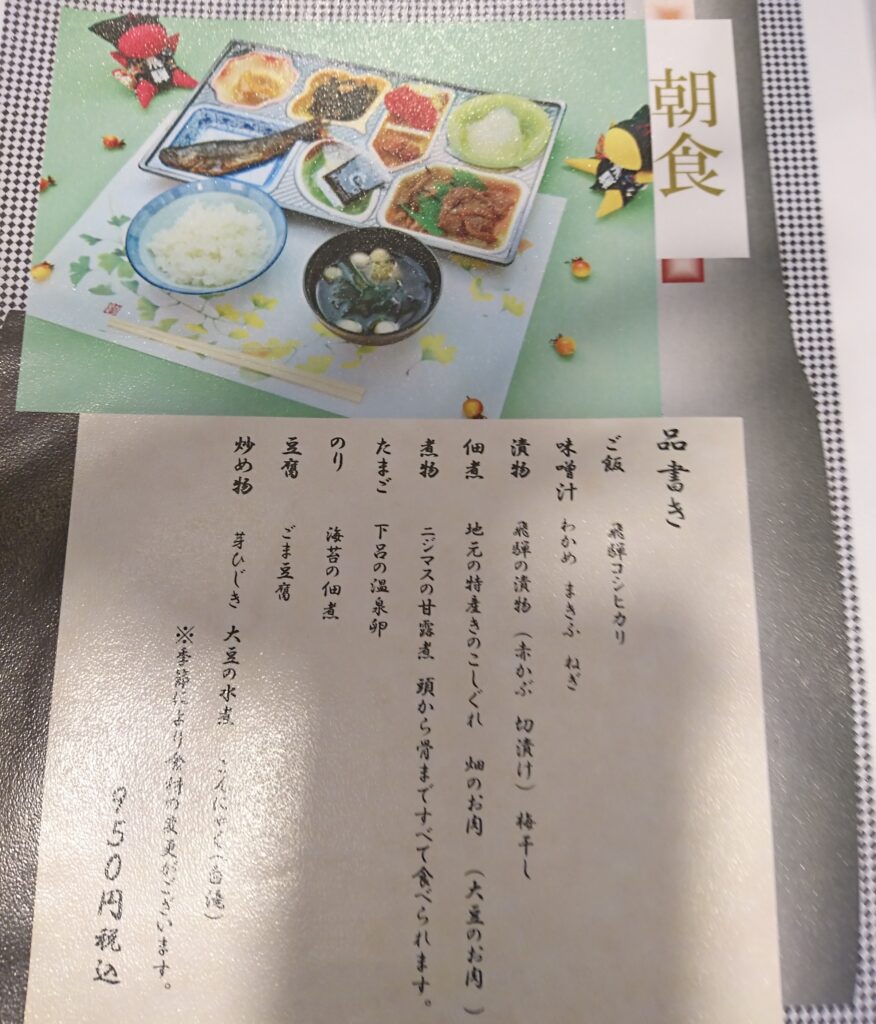 朝食
品書き
ご飯 飛騨コシヒカリ
味噌汁 わかめ まきふ ねぎ
漬物 飛騨の漬物（赤かぶ 切漬け）梅干し
佃煮 地元の特産きのこしぐれ 畑のお肉（大豆のお肉）
煮物 ニジマスの甘露煮 頭から骨まですべて食べられます。
たまご 下呂の温泉卵
のり 海苔の佃煮
豆腐 ごま豆腐
炒め物 芽ひじき 大豆の水煮 こんにゃく（白滝）
※季節により食材の変更がございます。
950円税込